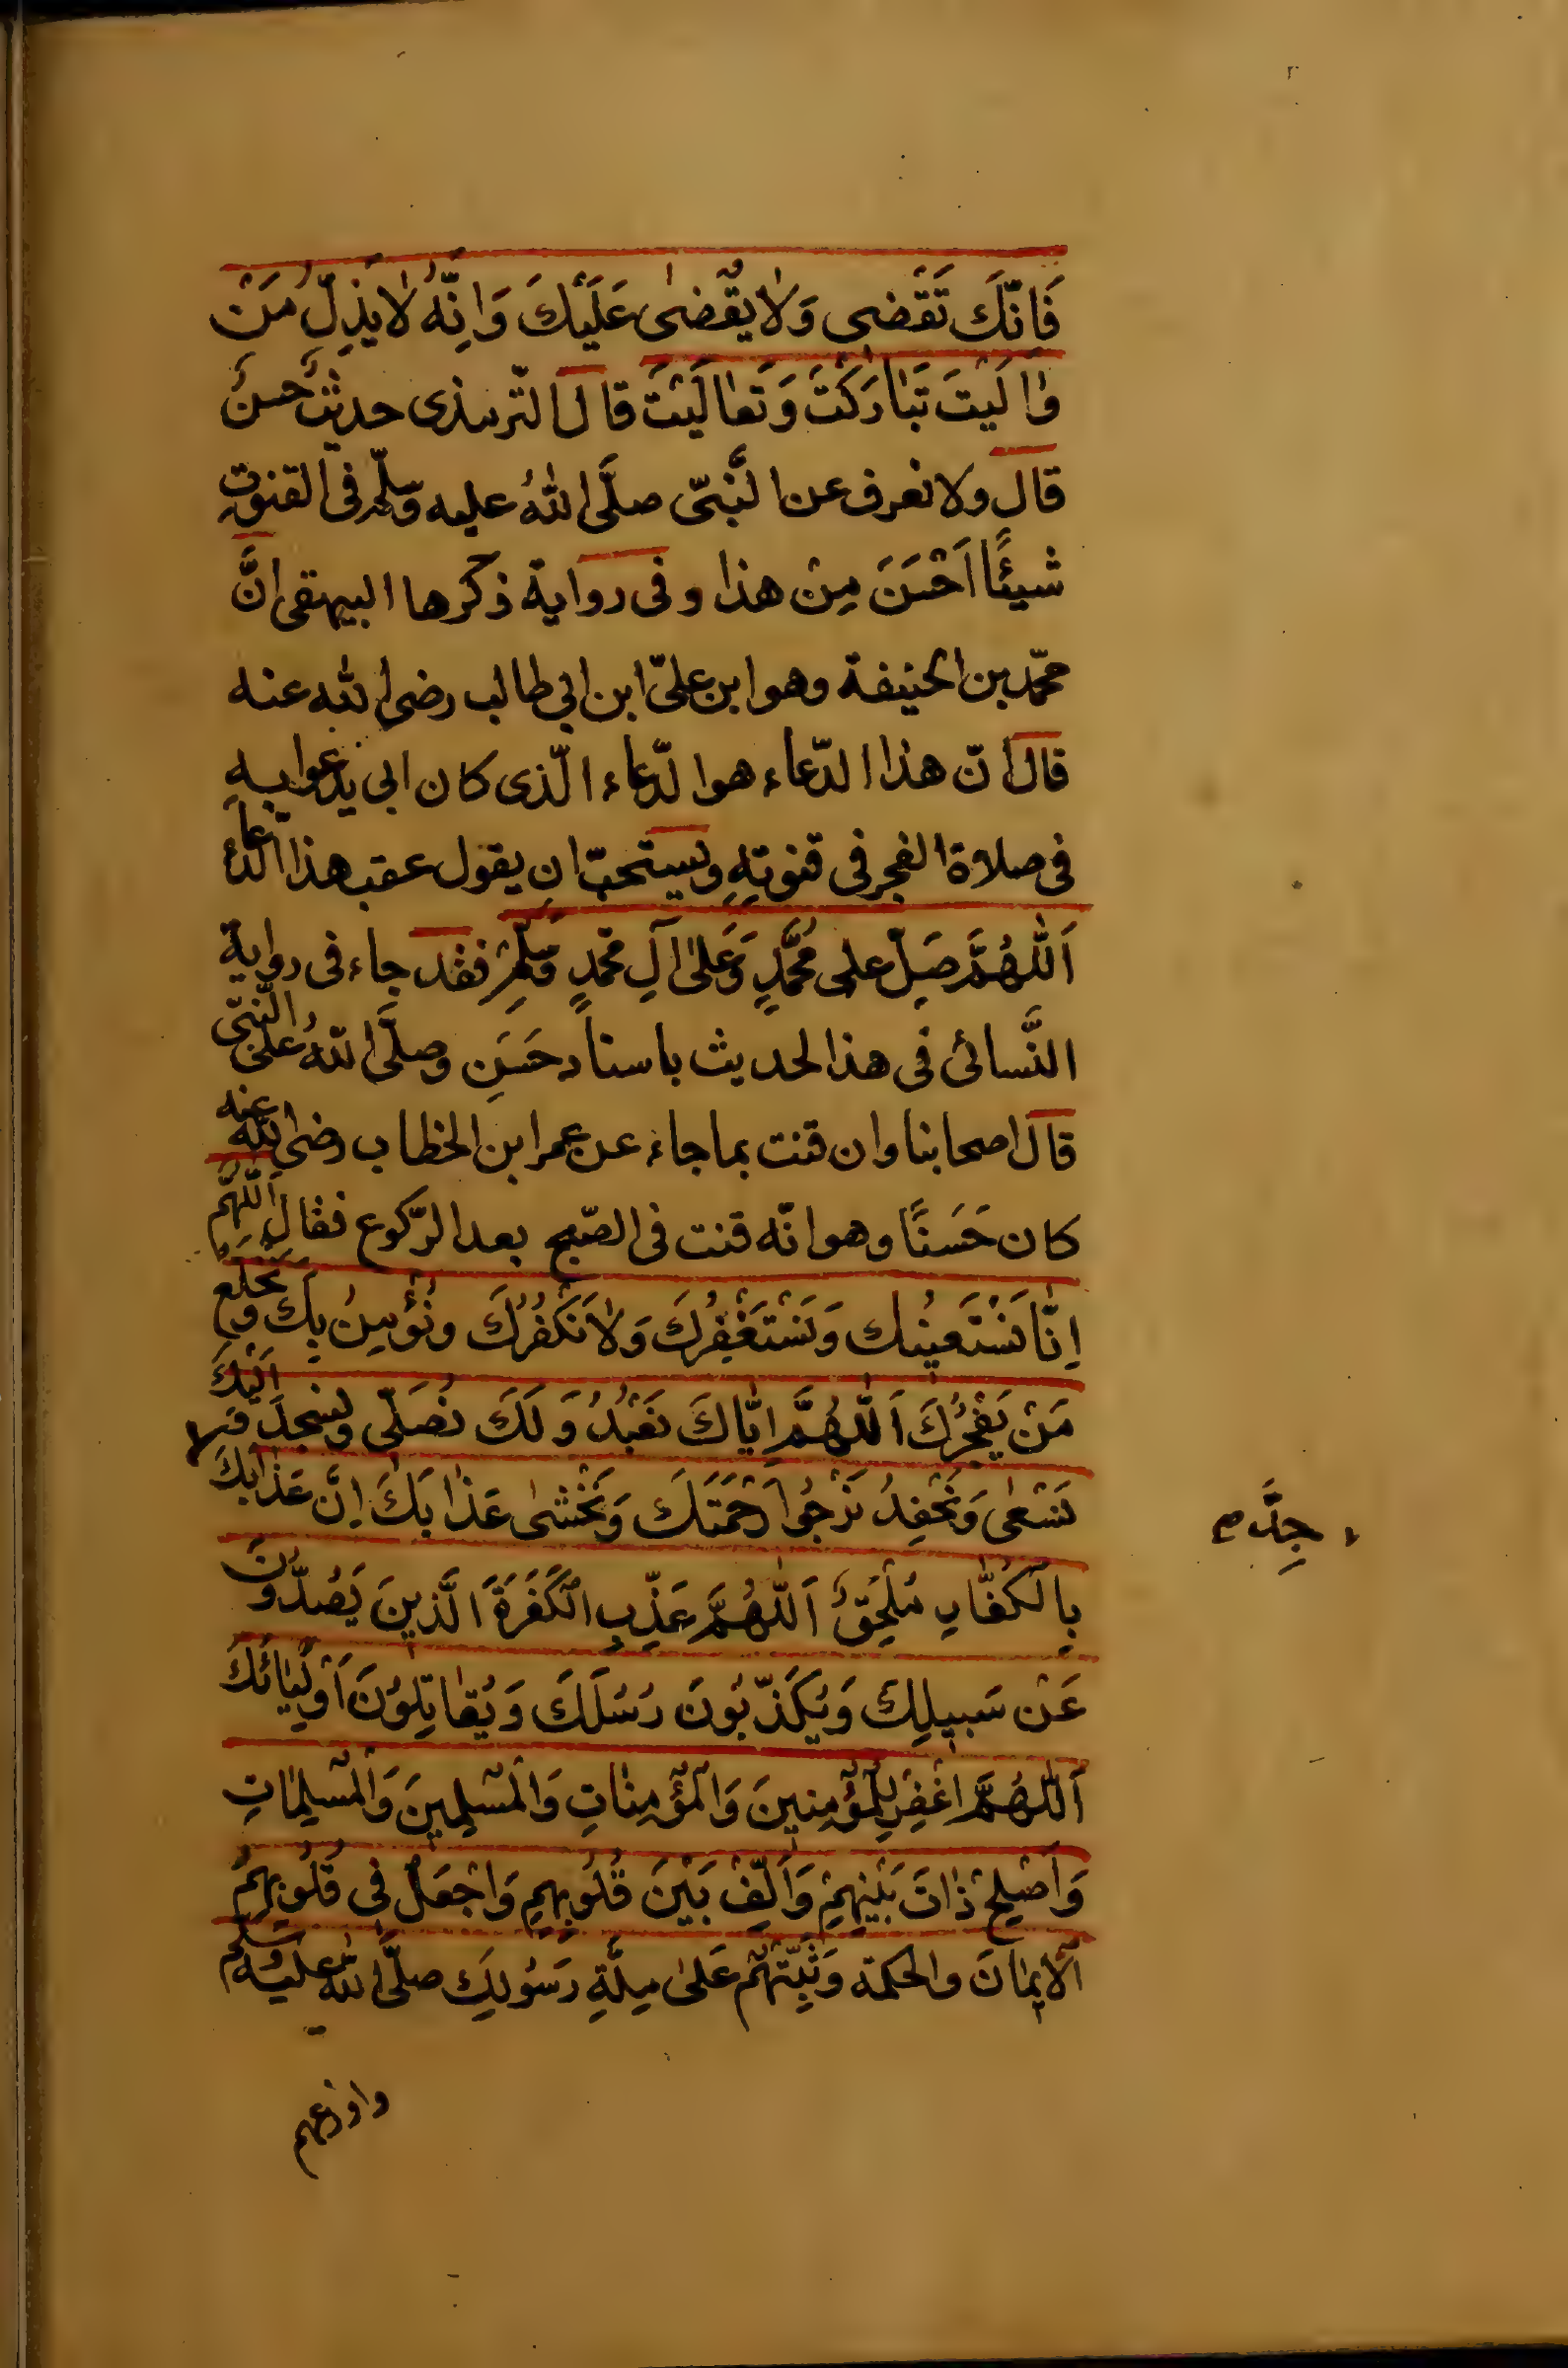 فَاِنَّكَ تَقْضِى وَلَا يُقْضىٰ عَلَيْكَ وَاِنَّهُ لَا يَذِلُّ مَنْ
وٰالَيْتَ تَبٰارَكْتَ وَتَعٰالَيْتَ قالَ التّرمذى حديث حسنٌ
قال ولا نعرف عن النَّبىّ صلَّى اللهُ عليه وسلّم فى القنوتِ
شيئًا اَحْسَنَ مِنْ هذا وفى رواية ذكرها البيهقى انَّ
محمّد بن الحنيفة وهو ابن علىّ ابن ابي طالب رضى الله عنه
قال انّ هذا الدّعاء هو الدّعاء الّذى كان ابى يدعوا بِهِ
فى صلاة الفجر فى قنوتِهِ ويستحبّ ان يقول عقب هذا الدّعاء
اَللّٰهُمَّ صَلِّ على مُحَمَّدٍ وَعَلىٰ آلِ محمّدٍ وَسَلِّمْ فقد جاء فى رواية
النَّسائى فى هذا الحديث باسنادٍ حَسَنٍ وصلَّى اللهُ على النَّبىّ
قال اصحابنا وان قنت بما جاء عن عمر ابن الخطاب رضى الله عنه
كان حَسَنًا وهو انّه قنت فى الصّبح بعد الرّكوع فقال اَللّٰهُمَّ
اِنّٰا نَسْتَعينُك وَنَسْتَغْفِرُكَ وَلاٰ نَكْفُرُكَ ونُؤْمِنُ بِكَ وَنَخْلَعُ
مَنْ يَفْجُرُكَ اَللّٰهُمَّ اِيّٰاكَ نَعْبُدُ وَلَكَ نُصَلّى ونسجد وَاِلَيْكَ
نَسْعٰى وَنَحْفِدُ نَرْجُوا رَحْمَتَكَ وَنَخْشىٰ عَذٰابَكَ اِنَّ عَذٰابَكَ
جِدَّ صح
بِالْكُفّٰارِ مُلْحِقٌ اَللّٰهُمَّ عَذِّبِ الْكَفَرَةَ الَّذينَ يَصُدُّونَ
عَنْ سَبيلِكَ وَيُكَذِّبُونَ رُسُلَكَ وَيُقٰاتِلوُنَ اَوْلِيٰائَكَ
اَللّٰهُمَّ اغْفِرْ لِلْمُؤْمِنينَ وَالْمُؤْمِنٰاتِ وَالْمُسْلِمينَ وَالْمُسْلِمٰاتِ
وَاَصْلِحْ ذٰاتَ بَيْنِهِمْ وَاَلِّفْ بَيْنَ قُلُوبِهِمْ وَاجْعَلْ فِى قُلُوبِهِمُ
الْاِيمٰانَ والحكمة وَثَبِّتْهُمْ عَلىٰ مِلَّةِ رَسُولِكَ صلَّى الله عليه وسلم
واوزعهم